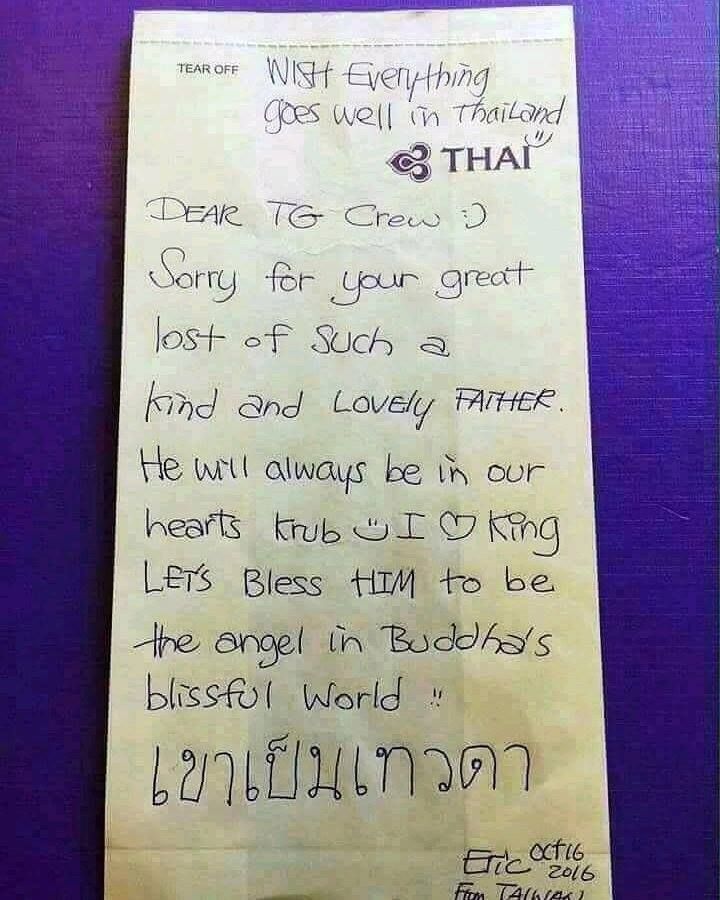 TEAR OFF
WISH Everything
goes well in Thailand
THAI
DEAR TG Crew :)
Sorry for your great
lost of such a
kind and LOVEly FATHER.
He will always be in our
hearts krub I ♡ King
LET'S Bless HIM to be
the angel in Buddha's
blissful World !!
เขาเป็นเทวดา
Eric Oct 16
2016
From TAIWAN